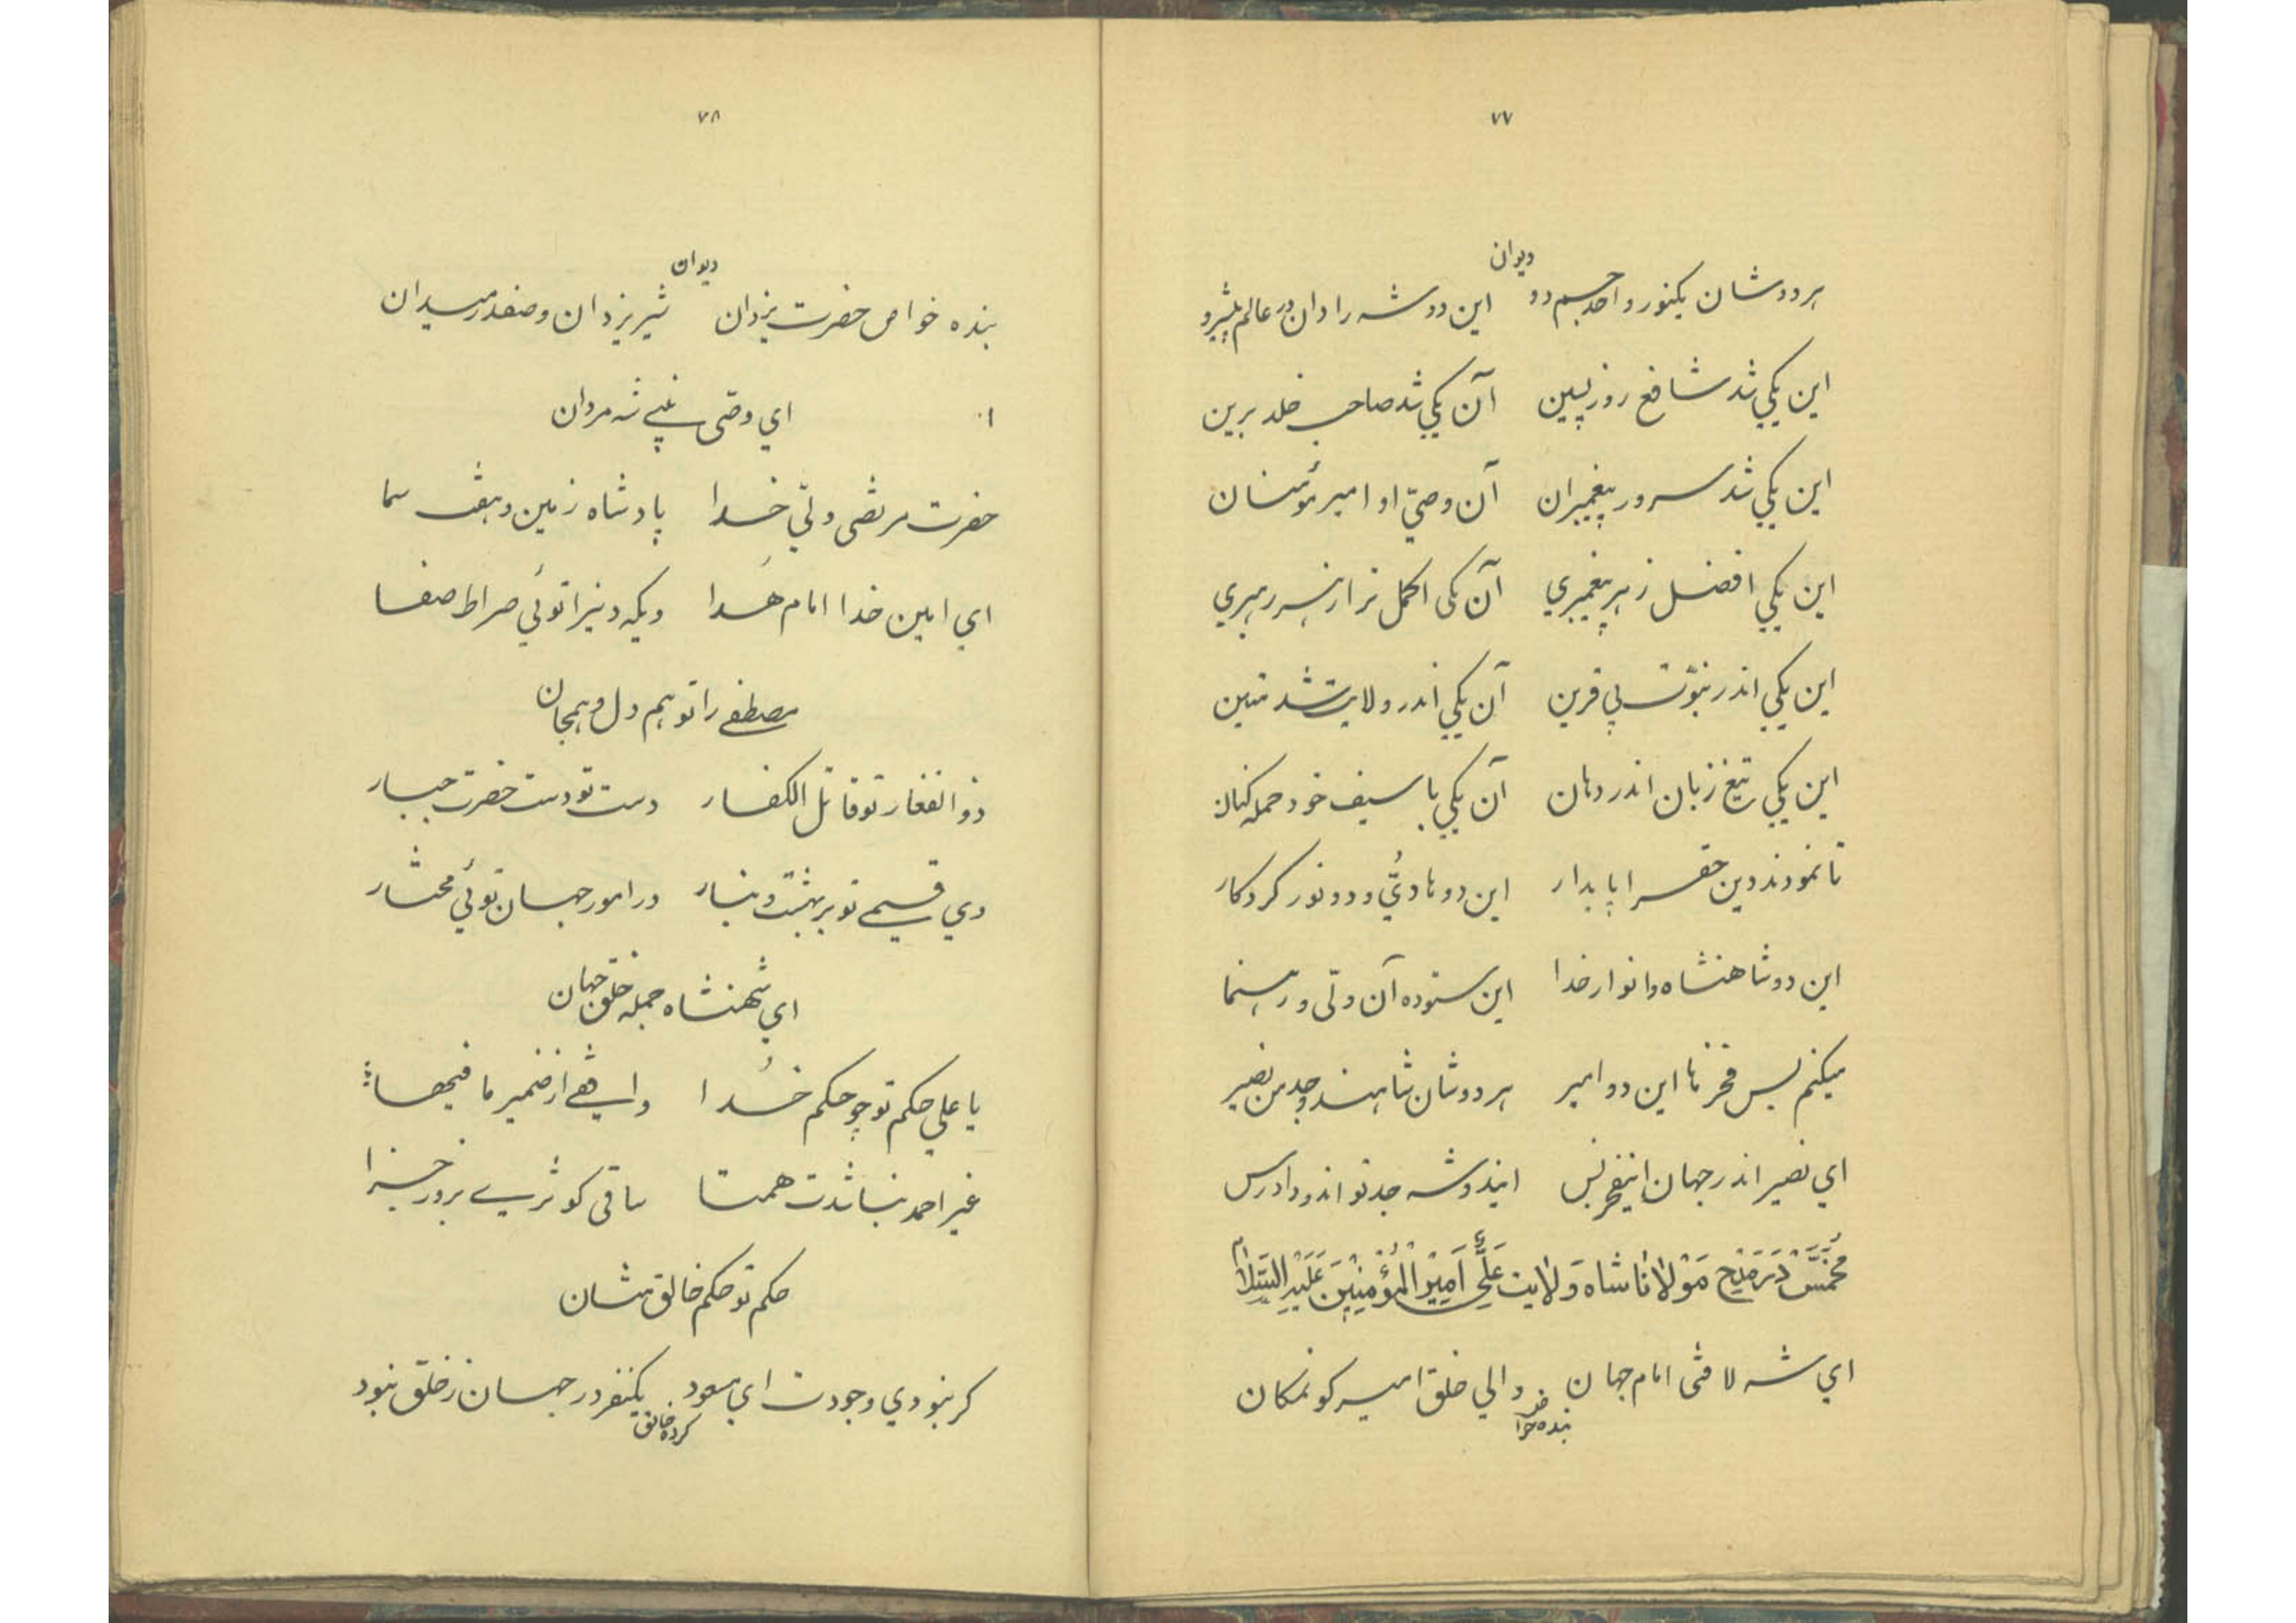 ۷۷
دیوان
هر دوشان یکنور و احد جسم دو این دو شه را دان در عالم پیشرو
این یکي شد شافع روز پسین آن یکي شد صاحب خلد برین
این یکي شد سرور پیغمبران آن وصيّ او امیر مؤمنان
این یکي افضل ز هر پیغمبري آن یکی اکمل تر از هر رهبري
این یکي اندر نبوّت بي قرین آن یکي اندر ولایت شد متین
این یکي تیغ زبان اندر دهان آن یکي با سیف خود حمله کنان
تا نمودند دین حق را پایدار این دو هاديّ و دو نور کردکار
این دو شاهنشاه و انوار خدا این ستوده آن ولّی و رهنما
میکنم بس فخرها این دو امیر هر دوشان شاهند و جد من نصیر
اي نصیر اندر جهان اینفخر بس ایندو شه جد تو اند و دادرس
مُخَمَّسْ دَرْ مَدْحِ مَوْلانا شاه وَلایت عَلّي اَمِیْرُ الْمُؤْمِنِیْنَ عَلَیْهِ السَّلام
اي شه لا فتی امام جهان والي خلق امیر کون مکان
بنده خواص
۷۸
دیوان
بنده خواص حضرت یزدان شیر یزدان و صفدر میدان
اي وصّی نبي شه مردان
حضرت مرتضی ولّي خدا پادشاه زمین و هفت سما
اي امین خدا امام هُدا ویکه دنیرا توئي صراط صفا
مصطفے را تو هم دل و همجان
ذو الفقار تو قاتل الکفار دست تو دست حضرت جبار
وي قسیمے تو بر بهشت و بنار در امور جهان توئي مختار
اي شهنشاه جمله خلق جهان
یا علي حکم تو چو حکم خُدا واقفے از ضمیر ما فیها
غیر احمد نباشدت همتا ساقی کوثرے بروز جزا
حکم تو حکم خالق منان
کر نبودي وجودت اي مسعود یکنفر در جهان ز خلق نبود
کرده خالق